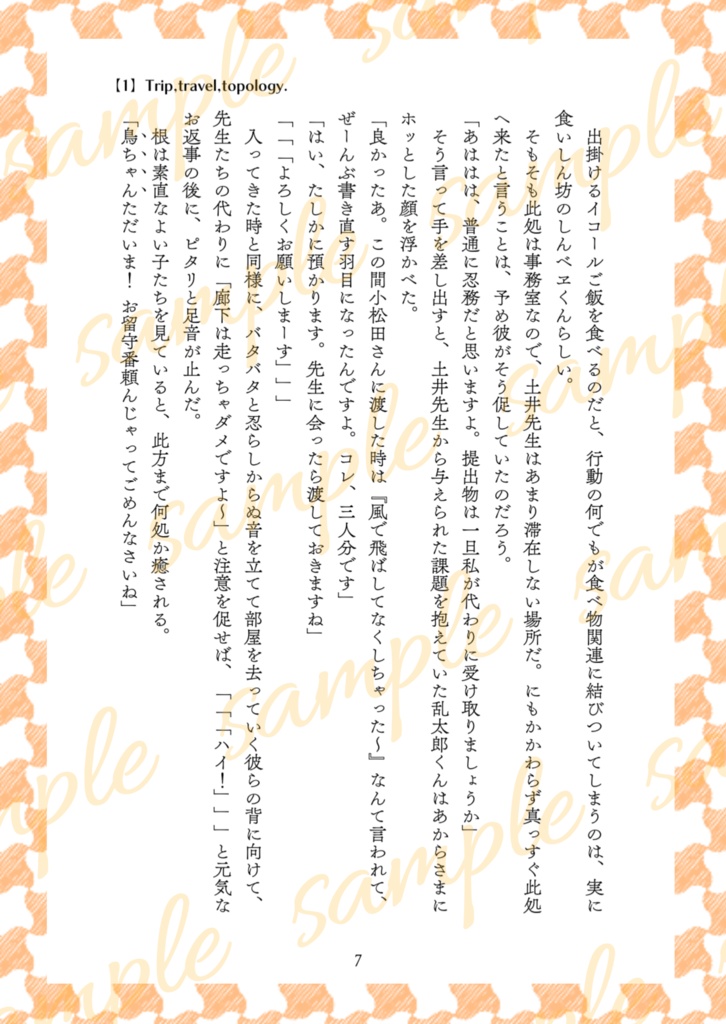 【1】Trip,travel,topology.
　出掛けるイコールご飯を食べるのだと、行動の何でもが食べ物関連に結びついてしまうのは、実に
食いしん坊のしんベヱくんらしい。
　そもそも此処は事務室なので、土井先生はあまり滞在しない場所だ。にもかかわらず真っすぐ此処
へ来たと言うことは、予め彼がそう促していたのだろう。
「あははは、普通に忍務だと思いますよ。提出物は一旦私が代わりに受け取りましょうか」
　そう言って手を差し出すと、土井先生から与えられた課題を抱えていた乱太郎くんはあからさまに
ホッとした顔を浮かべた。
「良かったあ。この間小松田さんに渡した時は『風で飛ばしてなくしちゃった〜』なんて言われて、
ぜーんぶ書き直す羽目になったんですよ。コレ、三人分です」
「はい、たしかに預かります。先生に会ったら渡しておきますね」
「「「よろしくお願いしまーす」」」
　入ってきた時と同様に、バタバタと忍らしからぬ音を立てて部屋を去っていく彼らの背に向けて、
先生たちの代わりに「廊下は走っちゃダメですよ〜」と注意を促せば、「「「ハイ！」」」と元気な
お返事の後に、ピタリと足音が止んだ。
　根は素直なよい子たちを見ていると、此方まで何処か癒される。
「鳥ちゃんただいま！　お留守番頼んじゃってごめんなさいね」
7
sample
sample
sample
sample
sample
sample
sample
sample
sample
sample
sample
sample